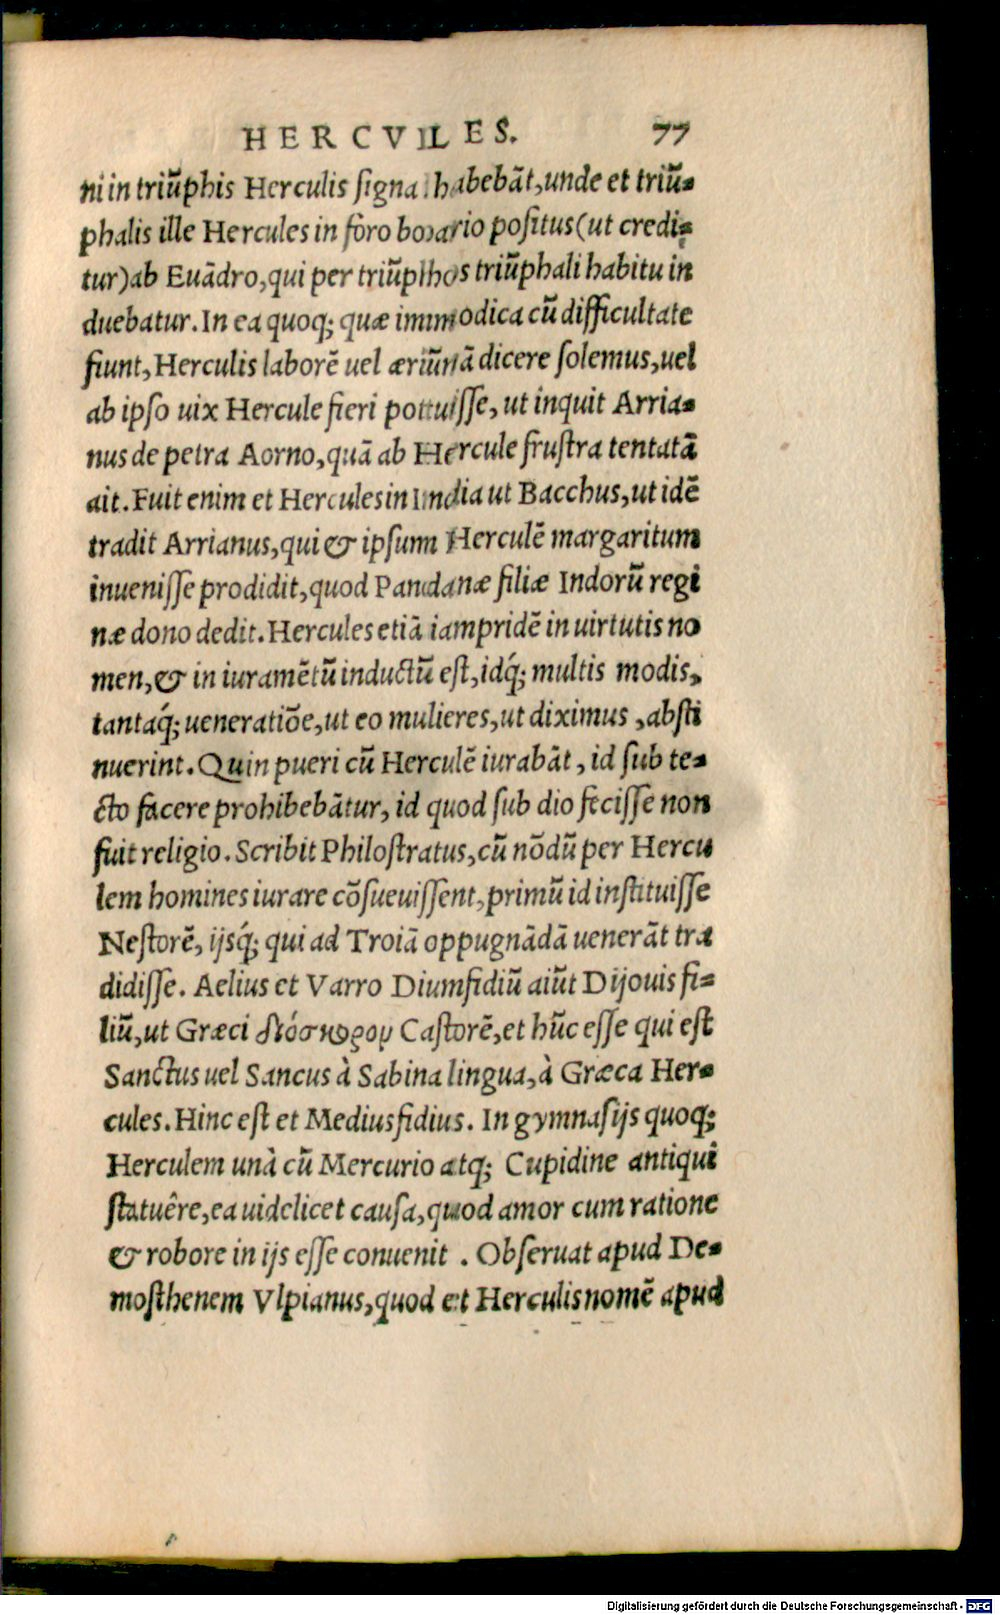 HERCVLES. 77
ni in triũphis Herculis ſigna habebãt,unde et triũ-
phalis ille Hercules in foro boario poſitus(ut credi-
tur)ab Euãdro,qui per triũphos triũphali habitu in
duebatur.In ea quoq; quæ immodica cũ difficultate
fiunt,Herculis laborẽ uel æriũnã dicere ſolemus,uel
ab ipſo uix Hercule fieri potuiſſe, ut inquit Arria-
nus de petra Aorno,quã ab Hercule fruſtra tentatã
ait.Fuit enim et Hercules in India ut Bacchus,ut idẽ
tradit Arrianus,qui & ipſum Herculẽ margaritum
inueniſſe prodidit,quod Pandanæ filiæ Indorũ regi
næ dono dedit.Hercules etiã iampridẽ in uirtutis no
men,& in iuramẽtũ inductũ eſt,idq́; multis modis,
tantaq́; ueneratiõe,ut eo mulieres,ut diximus ,abſti
nuerint.Quin pueri cũ Herculẽ iurabãt, id ſub te-
cto facere prohibebãtur, id quod ſub dio feciſſe non
fuit religio.Scribit Philoſtratus,cũ nõdũ per Hercu
lem homines iurare cõſueuiſſent,primũ id inſtituiſſe
Neſtorẽ, ijsq́; qui ad Troiã oppugnãdã uenerãt tra
didiſſe. Aelius et Varro Diumfidiũ aiũt Dijouis fi-
liũ,ut Græci διόσκορον Caſtorẽ,et hũc eſſe qui eſt
Sanctus uel Sancus à Sabina lingua,à Græca Her-
cules.Hinc eſt et Mediusfidius. In gymnaſijs quoq;
Herculem unà cũ Mercurio atq; Cupidine antiqui
ſtatuêre,ea uidelicet cauſa,quod amor cum ratione
& robore in ijs eſſe conuenit . Obſeruat apud De-
moſthenem Vlpianus,quod et Herculis nomẽ apud
Digitalisierung gefördert durch die Deutsche Forschungsgemeinschaft - DFG